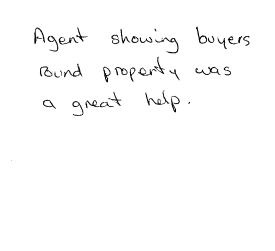 Agent showing buyers
round property was
a great help.